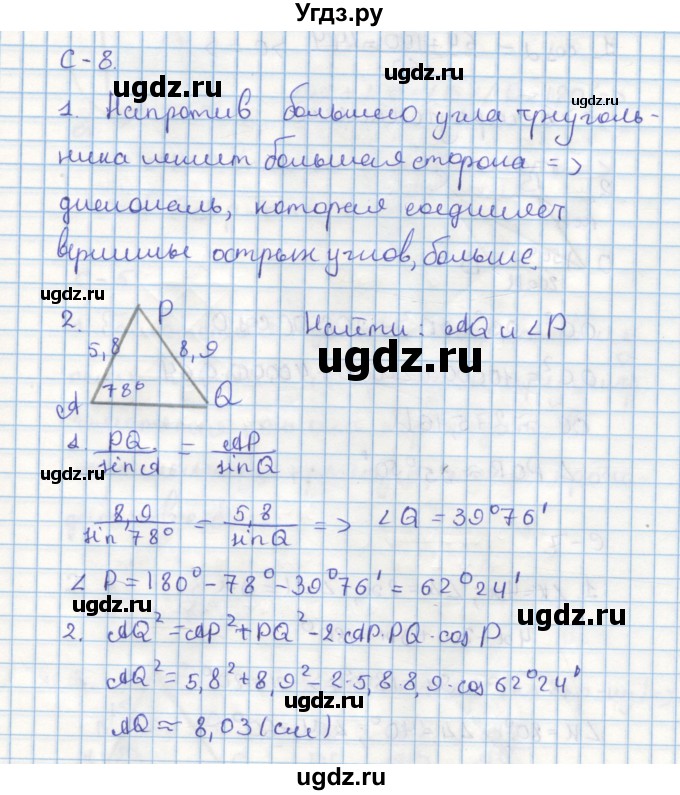 Угдз.ру
С - 8.
ugdz.ru
ugdz.ru
1. Напротив большего угла треуголь-
ника лежит большая сторона =>
ugdz.ru
диагональ, которая соединяет
вершины острых углов, больше.
ugdz.ru
ugdz.ru
2. P Найти: AQ и ∠P
5,8 8,9
ugdz.ru
78°
A Q
1. PQ/sin A = AP/sin Q
ugdz.ru
ugdz.ru
8,9/sin 78° = 5,8/sin Q => ∠Q = 39°76'
∠P = 180° - 78° - 39°76' = 62°24'
ugdz.ru
ugdz.ru
2. AQ² = AP² + PQ² - 2·AP·PQ·cos P
AQ² = 5,8² + 8,9² - 2·5,8·8,9·cos 62°24'
ugdz.ru
AQ ≈ 8,03 (см)
ugdz.ru
ugdz.ru